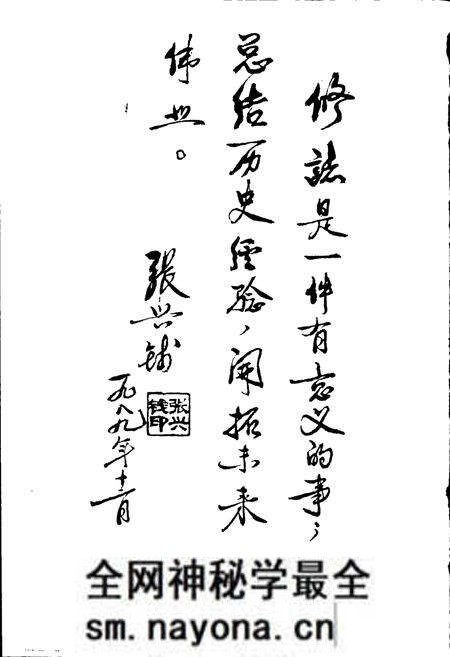 修誌是一件有意义的事，
总结历史经验，开拓未来
伟业。
张兴钱
一九八九年十二月
张兴
钱印
全网神秘学最全
sm.nayona.cn